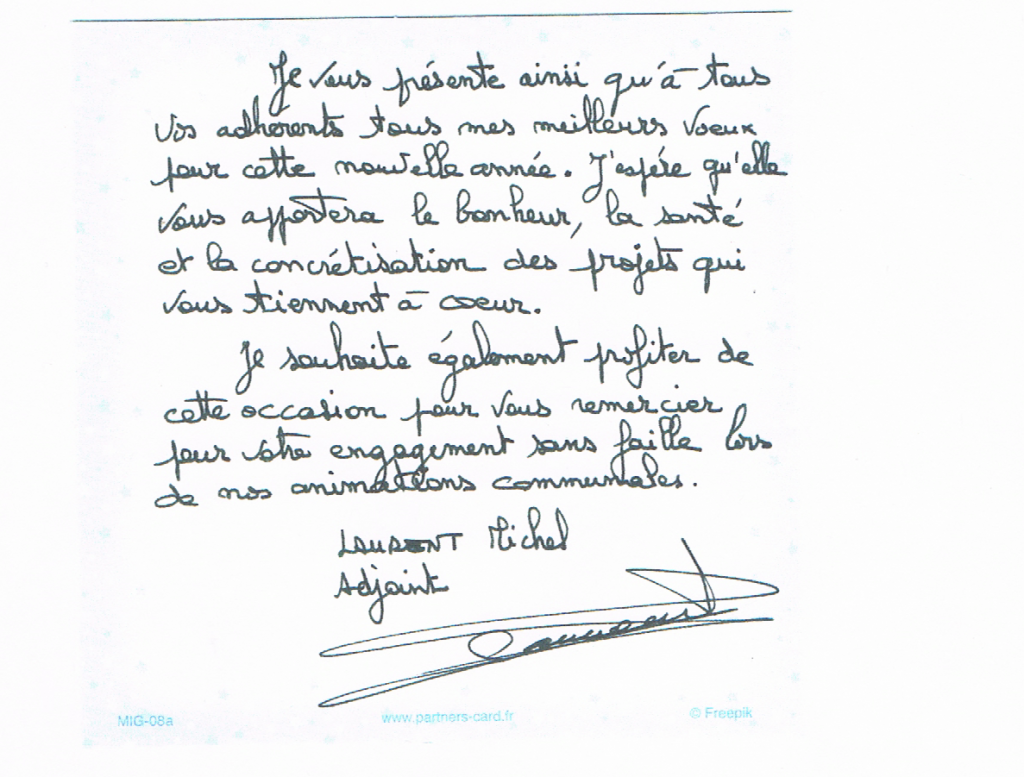 Je vous présente ainsi qu'à tous
vos adhérents tous mes meilleurs voeux
pour cette nouvelle année. J'espère qu'elle
vous apportera le bonheur, la santé
et la concrétisation des projets qui
vous tiennent à coeur.
Je souhaite également profiter de
cette occasion pour vous remercier
pour votre engagement sans faille lors
de nos animations communales.
LAURENT Michel
Adjoint
MIG-08a
www.partners-card.fr
© Freepik